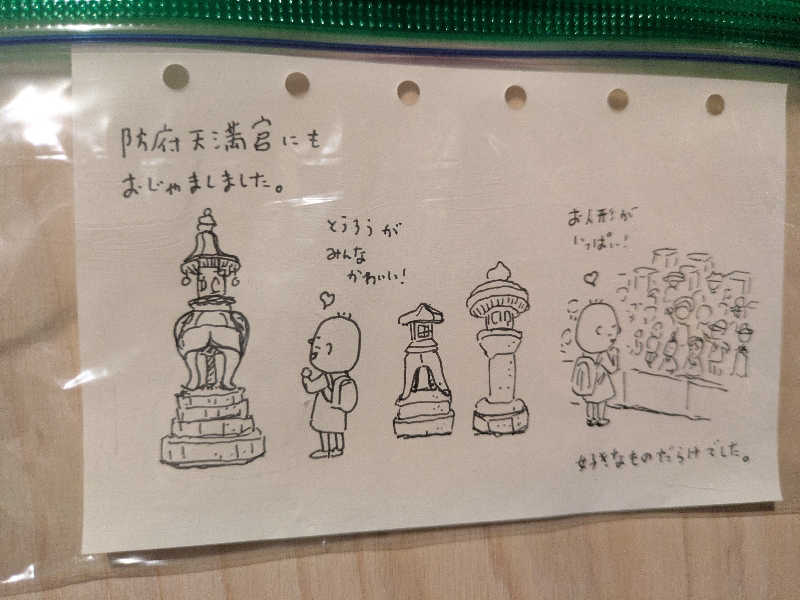 防府天満宮にも
おじゃましました。
とうろうが
みんな
かわいい!
お人形が
いっぱい!
好きなものだらけでした。